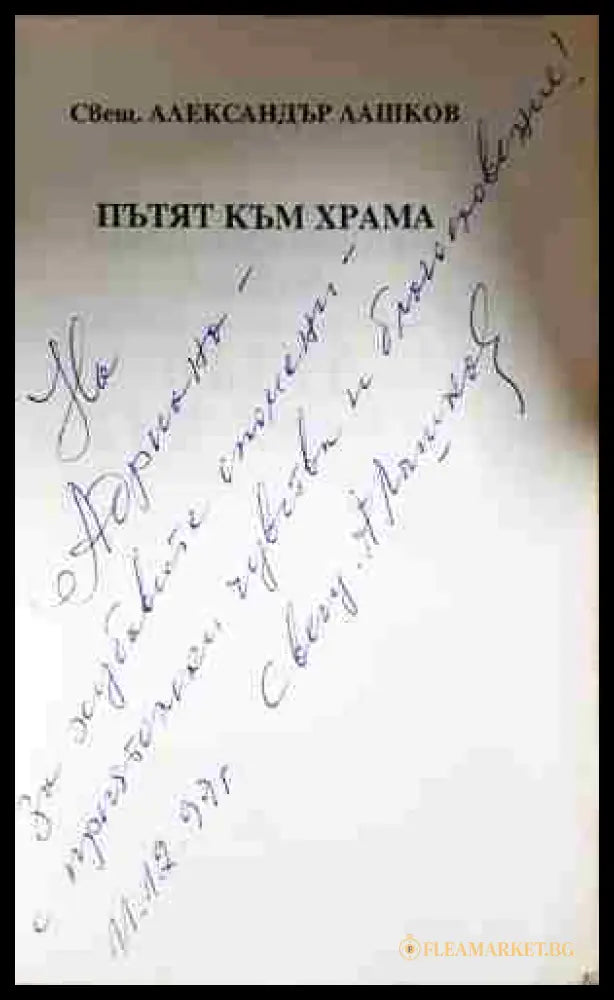 Свещ. АЛЕКСАНДЪР ЛАШКОВ
ПЪТЯТ КЪМ ХРАМА
На
Адриана -
За хубавите спомени -
с приятелски чувства и благоговение!
Свещ. А Лашков
11.12.97г
FLEAMARKET.BG